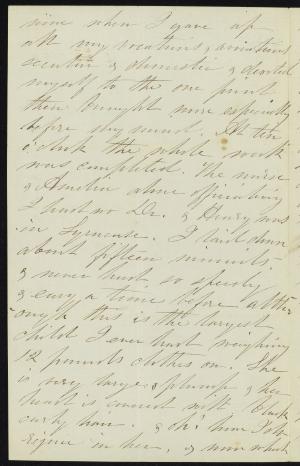 nine when I gave up
all my vocations & avocations
secular & domestic & devoted
myself to the one point
then brought more especially
before my mind. At ten
o'clock the whole work
was completed. The nurse
& Amelia alone officiating
I had no Dr. & Henry was
in Syracuse. I laid down
about fifteen minutes
& never had so speedy
& easy a time before altho
ough this is the largest
child I ever had weighing
12 pounds clothes on. She
is very large & plump & her
head is covered with black
curly hair. & oh! how I do
rejoice in her. & now what